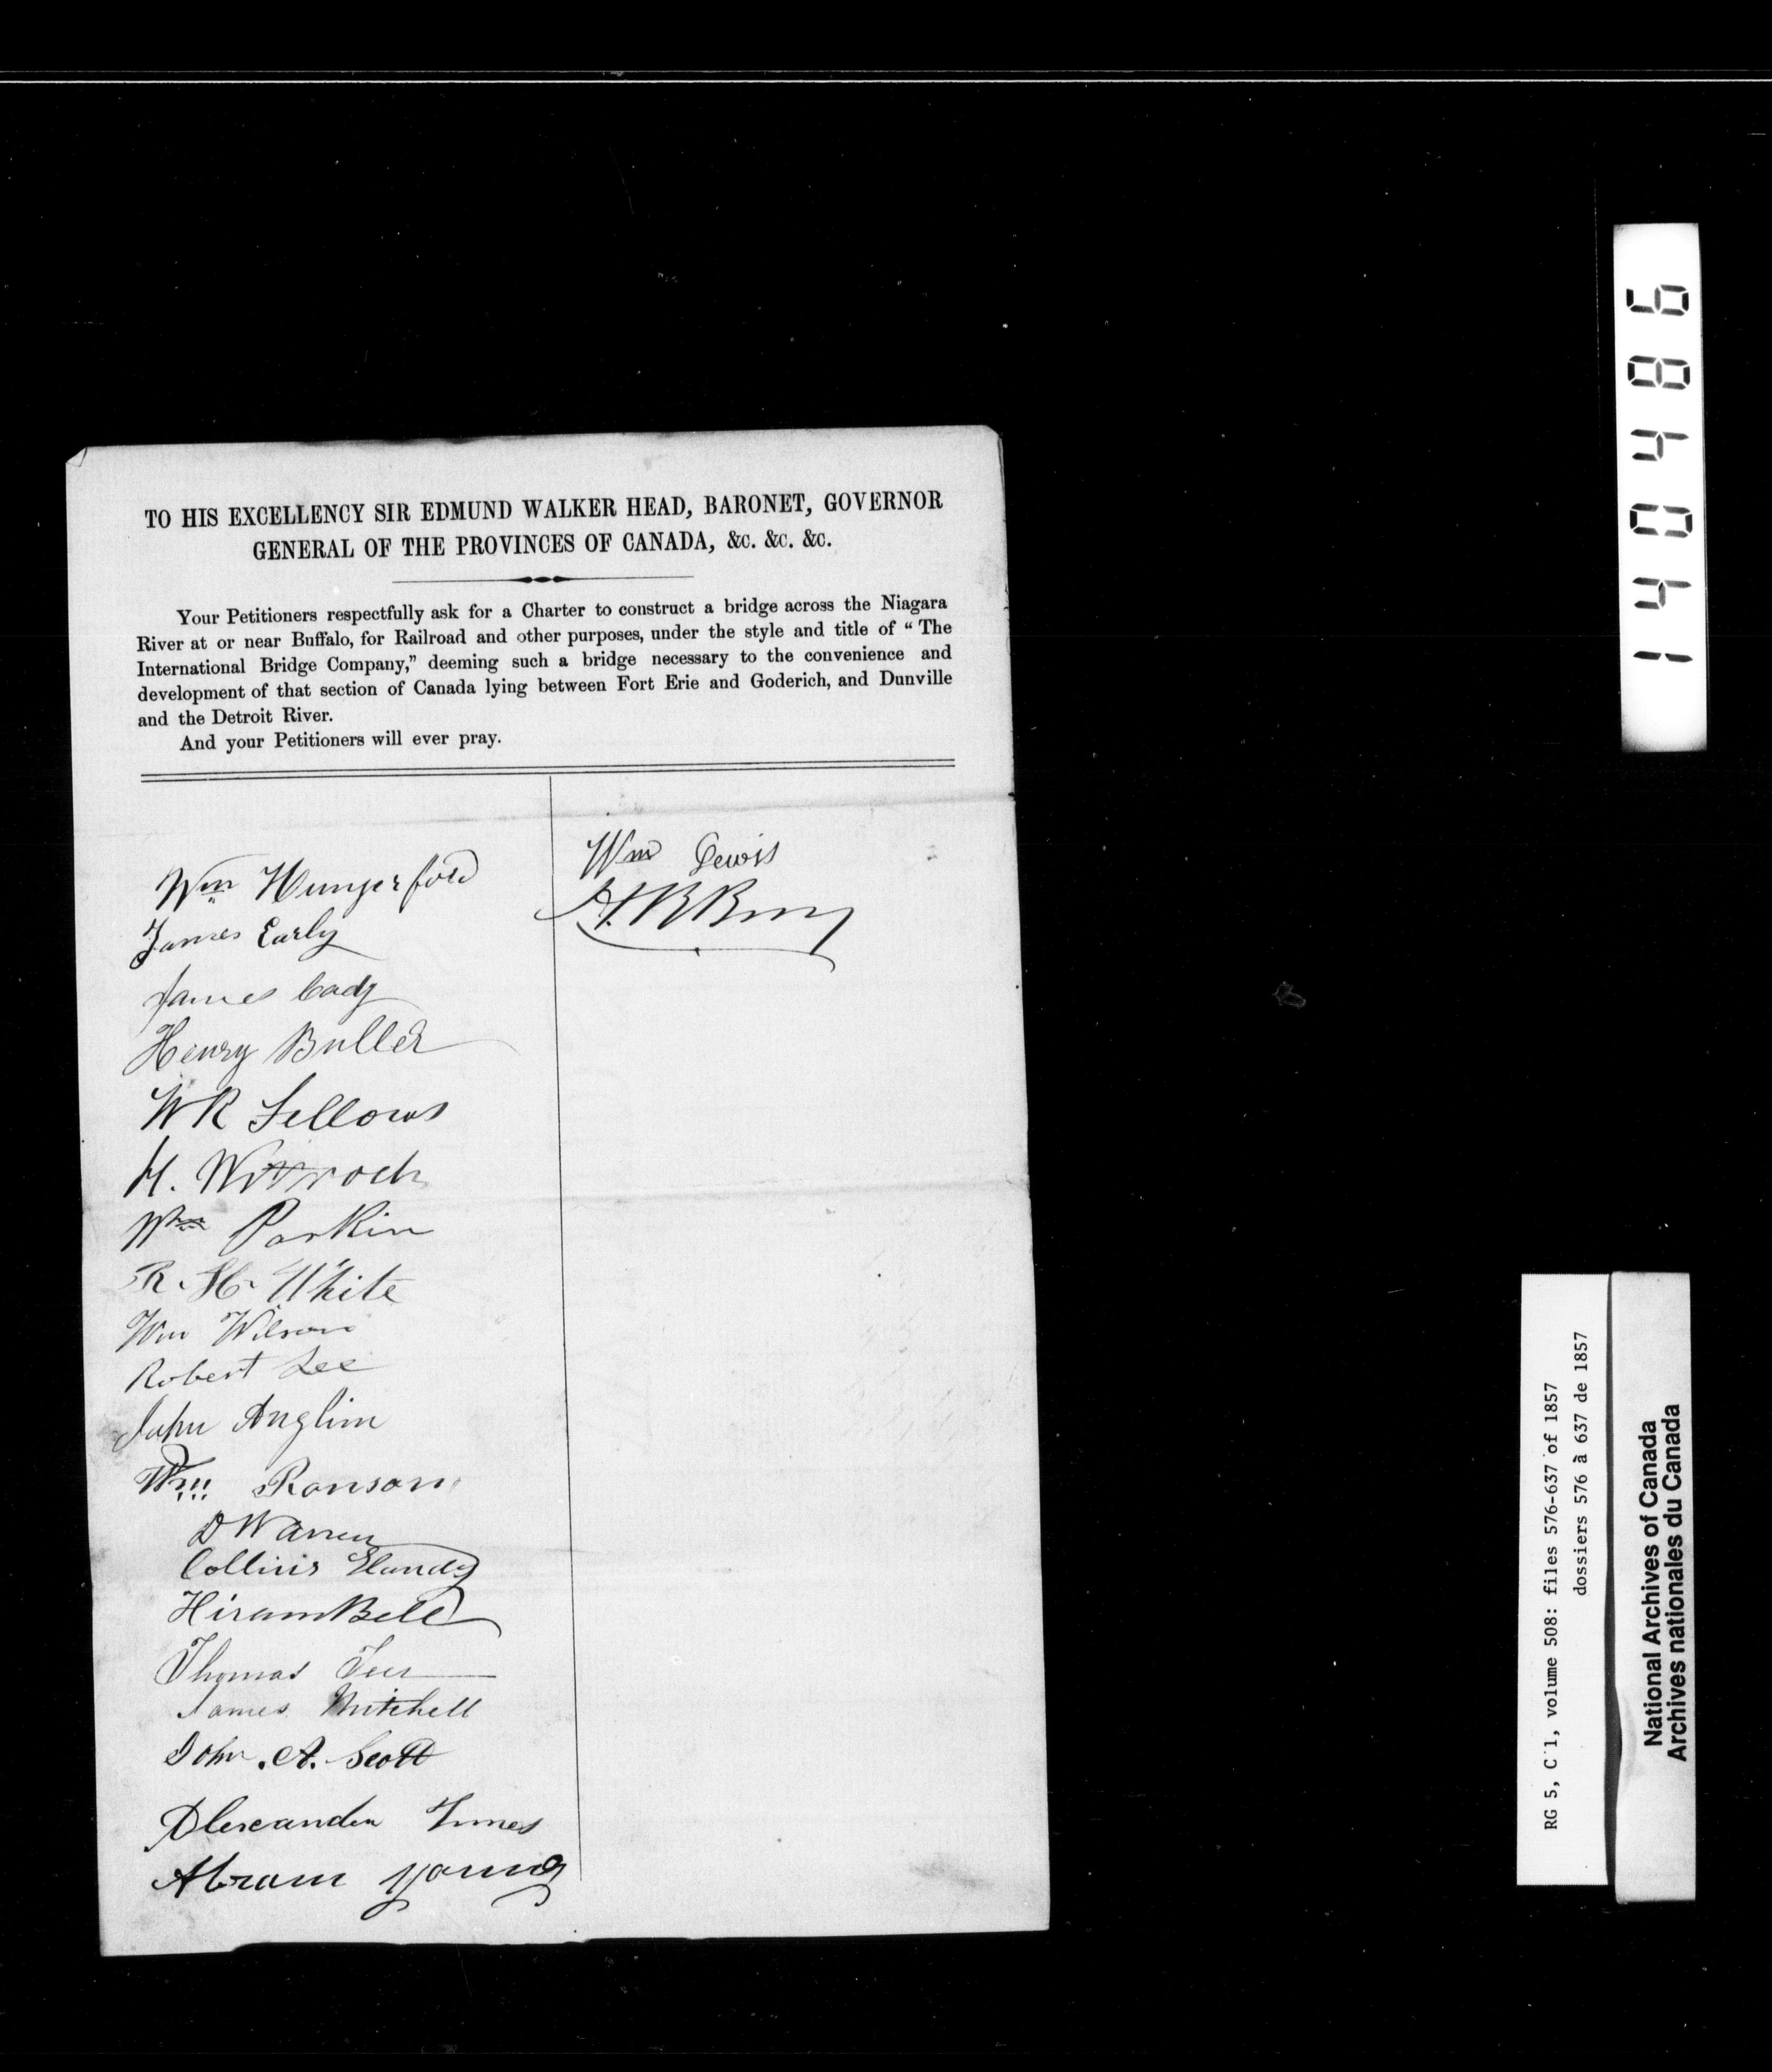 TO HIS EXCELLENCY SIR EDMUND WALKER HEAD, BARONET, GOVERNOR
GENERAL OF THE PROVINCES OF CANADA, &c. &c. &c.
Your Petitioners respectfully ask for a Charter to construct a bridge across the Niagara
River at or near Buffalo, for Railroad and other purposes, under the style and title of “ The
International Bridge Company,” deeming such a bridge necessary to the convenience and
development of that section of Canada lying between Fort Erie and Goderich, and Dunville
and the Detroit River.
And your Petitioners will ever pray.
Wm Hungerford
James Early
James Cady
Henry Buller
W R Fellows
H.
Wm Parkin
R. H. White
Wm Wilson
Robert Lee
John Anglim
Wm Ranson
D Warren
Collins Handy
Hiram Bell
Thomas
James Mitchell
John. A. Scott
Alexander Innes
Abram Young
Wm Lewis
140486
RG 5, C 1, volume 508: files 576-637 of 1857
dossiers 576 à 637 de 1857
National Archives of Canada
Archives nationales du Canada